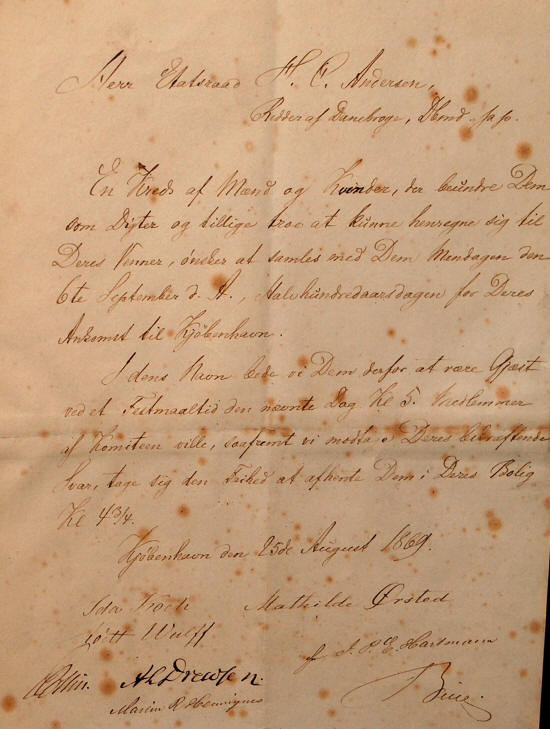 Herr Etatsraad H. C. Andersen,
Ridder af Danebroge, Dbmd. pp.
En Kreds af Mænd og Kvinder, der beundre Dem
som Digter og tillige troe at kunne henregne sig til
Deres Venner, ønsker at samles med Dem Mandagen den
6te September d. A., Halvhundredaarsdagen for Deres
Ankomst til Kjøbenhavn.
I dens Navn bede vi Dem derfor at være Gjæst
ved et Festmaaltid den nævnte Dag Kl 5. Medlemmer
af Komiteen ville, saafremt vi modtage Deres bekræftende
Svar, tage sig den Frihed at afhente Dem i Deres Bolig
Kl 4 3/4.
Kjøbenhavn den 25de August 1869.
Ida Koch Mathilde Ørsted
Wulff J. P. E. Hartmann
Collin. Drewsen. Bille.
Martin R Henriques